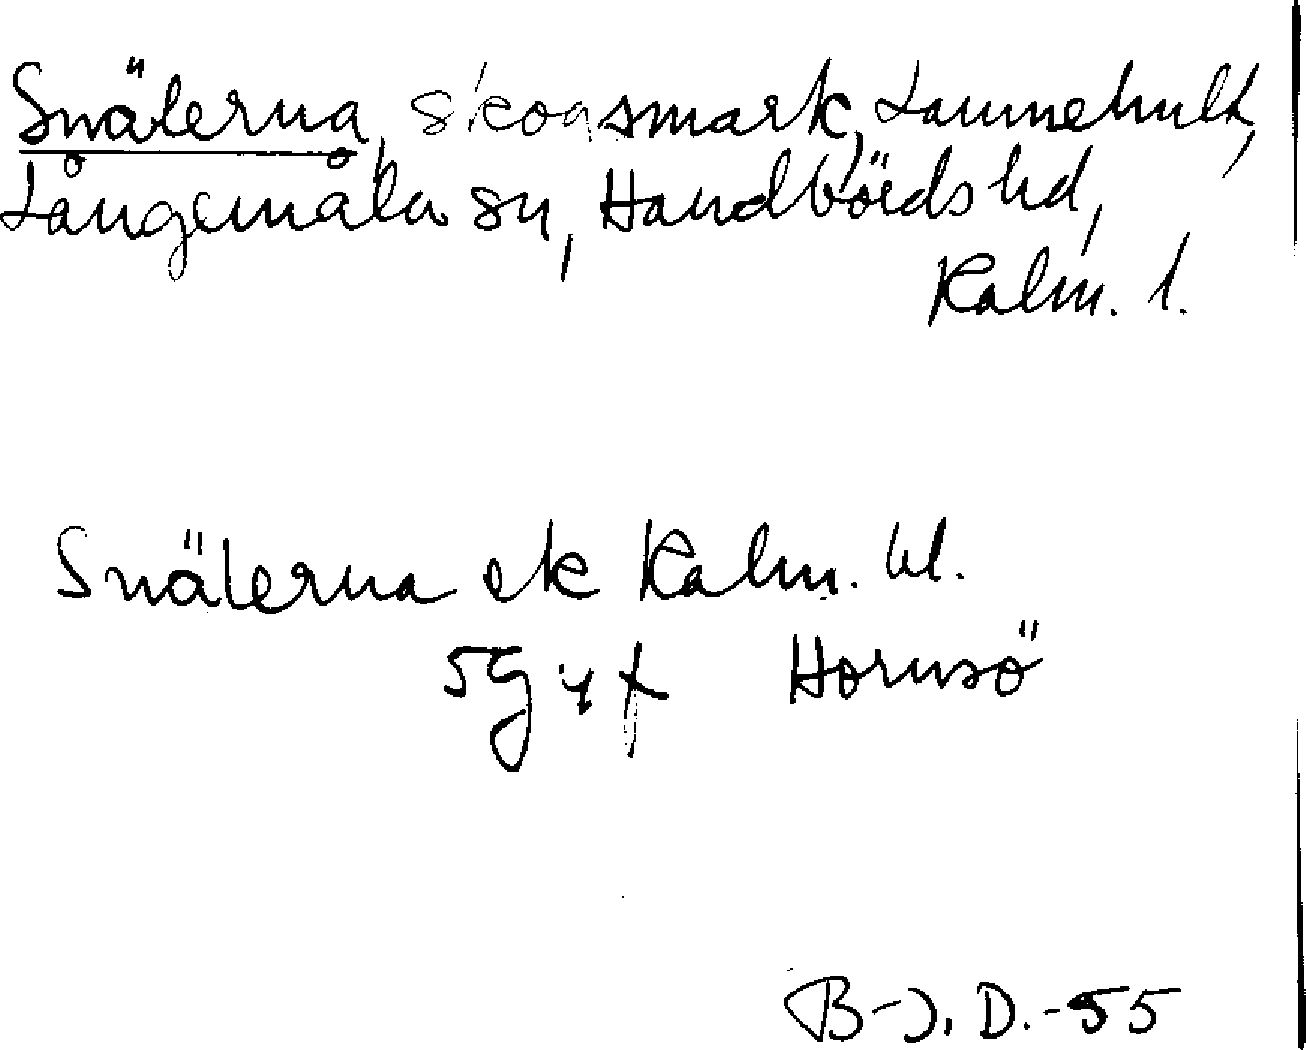 Snälerna, skogsmark, Lannehult,
Långemåla sn, Handbörds hd,
Kalm. l.
Snälerna ek Kalm. bl.
5G y x Hornsö
B-J. D.-55